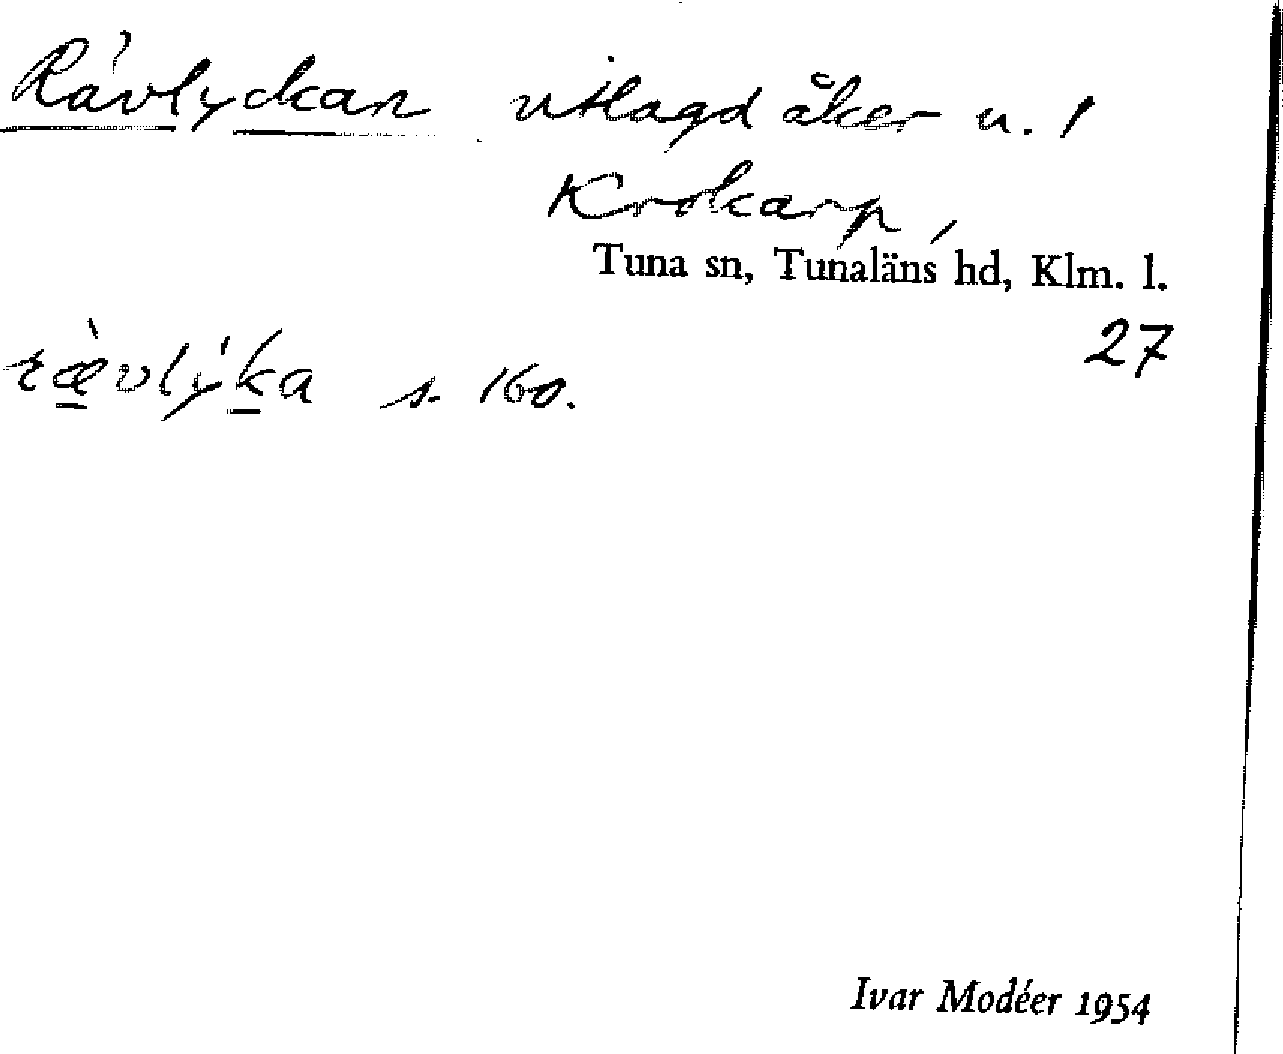 Rävlyckan utlagd åker u. 1
Krokarp,
Tuna sn, Tunaläns hd, Klm. l.
27
ræ̀vlýka s. 160.
Ivar Modéer 1954